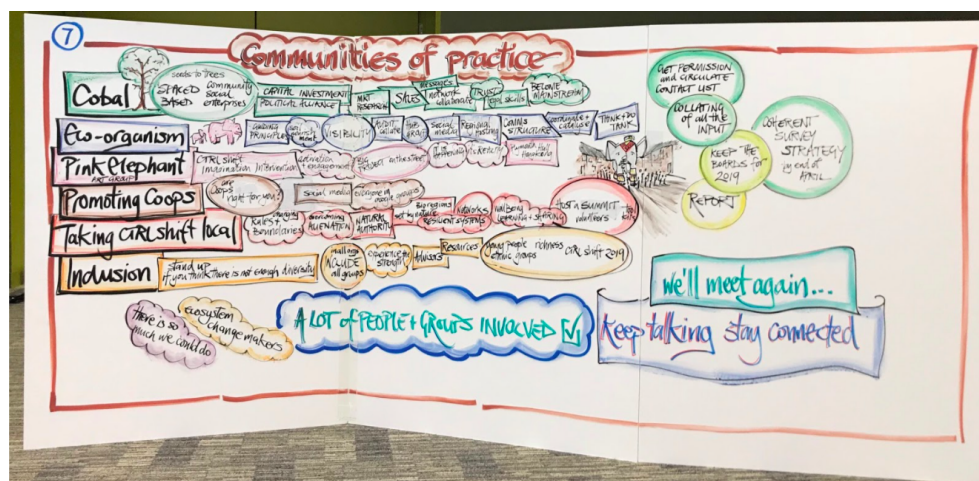 7
Communities of practice
Cobal
seeds to trees
STAKED community
BASED social
enterprises
CAPITAL INVESTMENT
POLITICAL ALLIANCE
MKT
RESEARCH
SALES
messages
network
collaborate
TRUST
legal skills
BECOME
MAINSTREAM
Eco-organism
GUIDING
PRINCIPLES
VISIBILITY
AUDIT
culture
Social
media
Regional
COMMS
STRUCTURE
catalyse
THINK + DO
TANK
Pink elephant
ART GROUP
CTRL Shift
Imagination Intervention
activation
+ engagement
Promoting Coops
are
Coops
right for you?
social media
Taking CTRL shift local
changing
RULES +
Boundaries
overcoming
ALIENATION
NATURAL
AUTHORITY
Bioregions
set by nature
RESILIENT SYSTEMS
NETWORKS
LEARNING + SHARING
HOST A SUMMIT
Inclusion
stand up
if you think there is not enough diversity
INCLUDE
all groups
experience the
STRENGTH
Advisors
Resources
young people richness
ethnic groups
CTRL Shift 2019
there is so
much we could do
ecosystem
change makers
A LOT of PEOPLE + GROUPS INVOLVED
GET PERMISSION
and CIRCULATE
CONTACT LIST
COLLATING
of all the
INPUT
KEEP THE
BOARDS for
2019
REPORT
COHERENT
SURVEY
STRATEGY
by end of
APRIL
we'll meet again...
keep talking stay connected